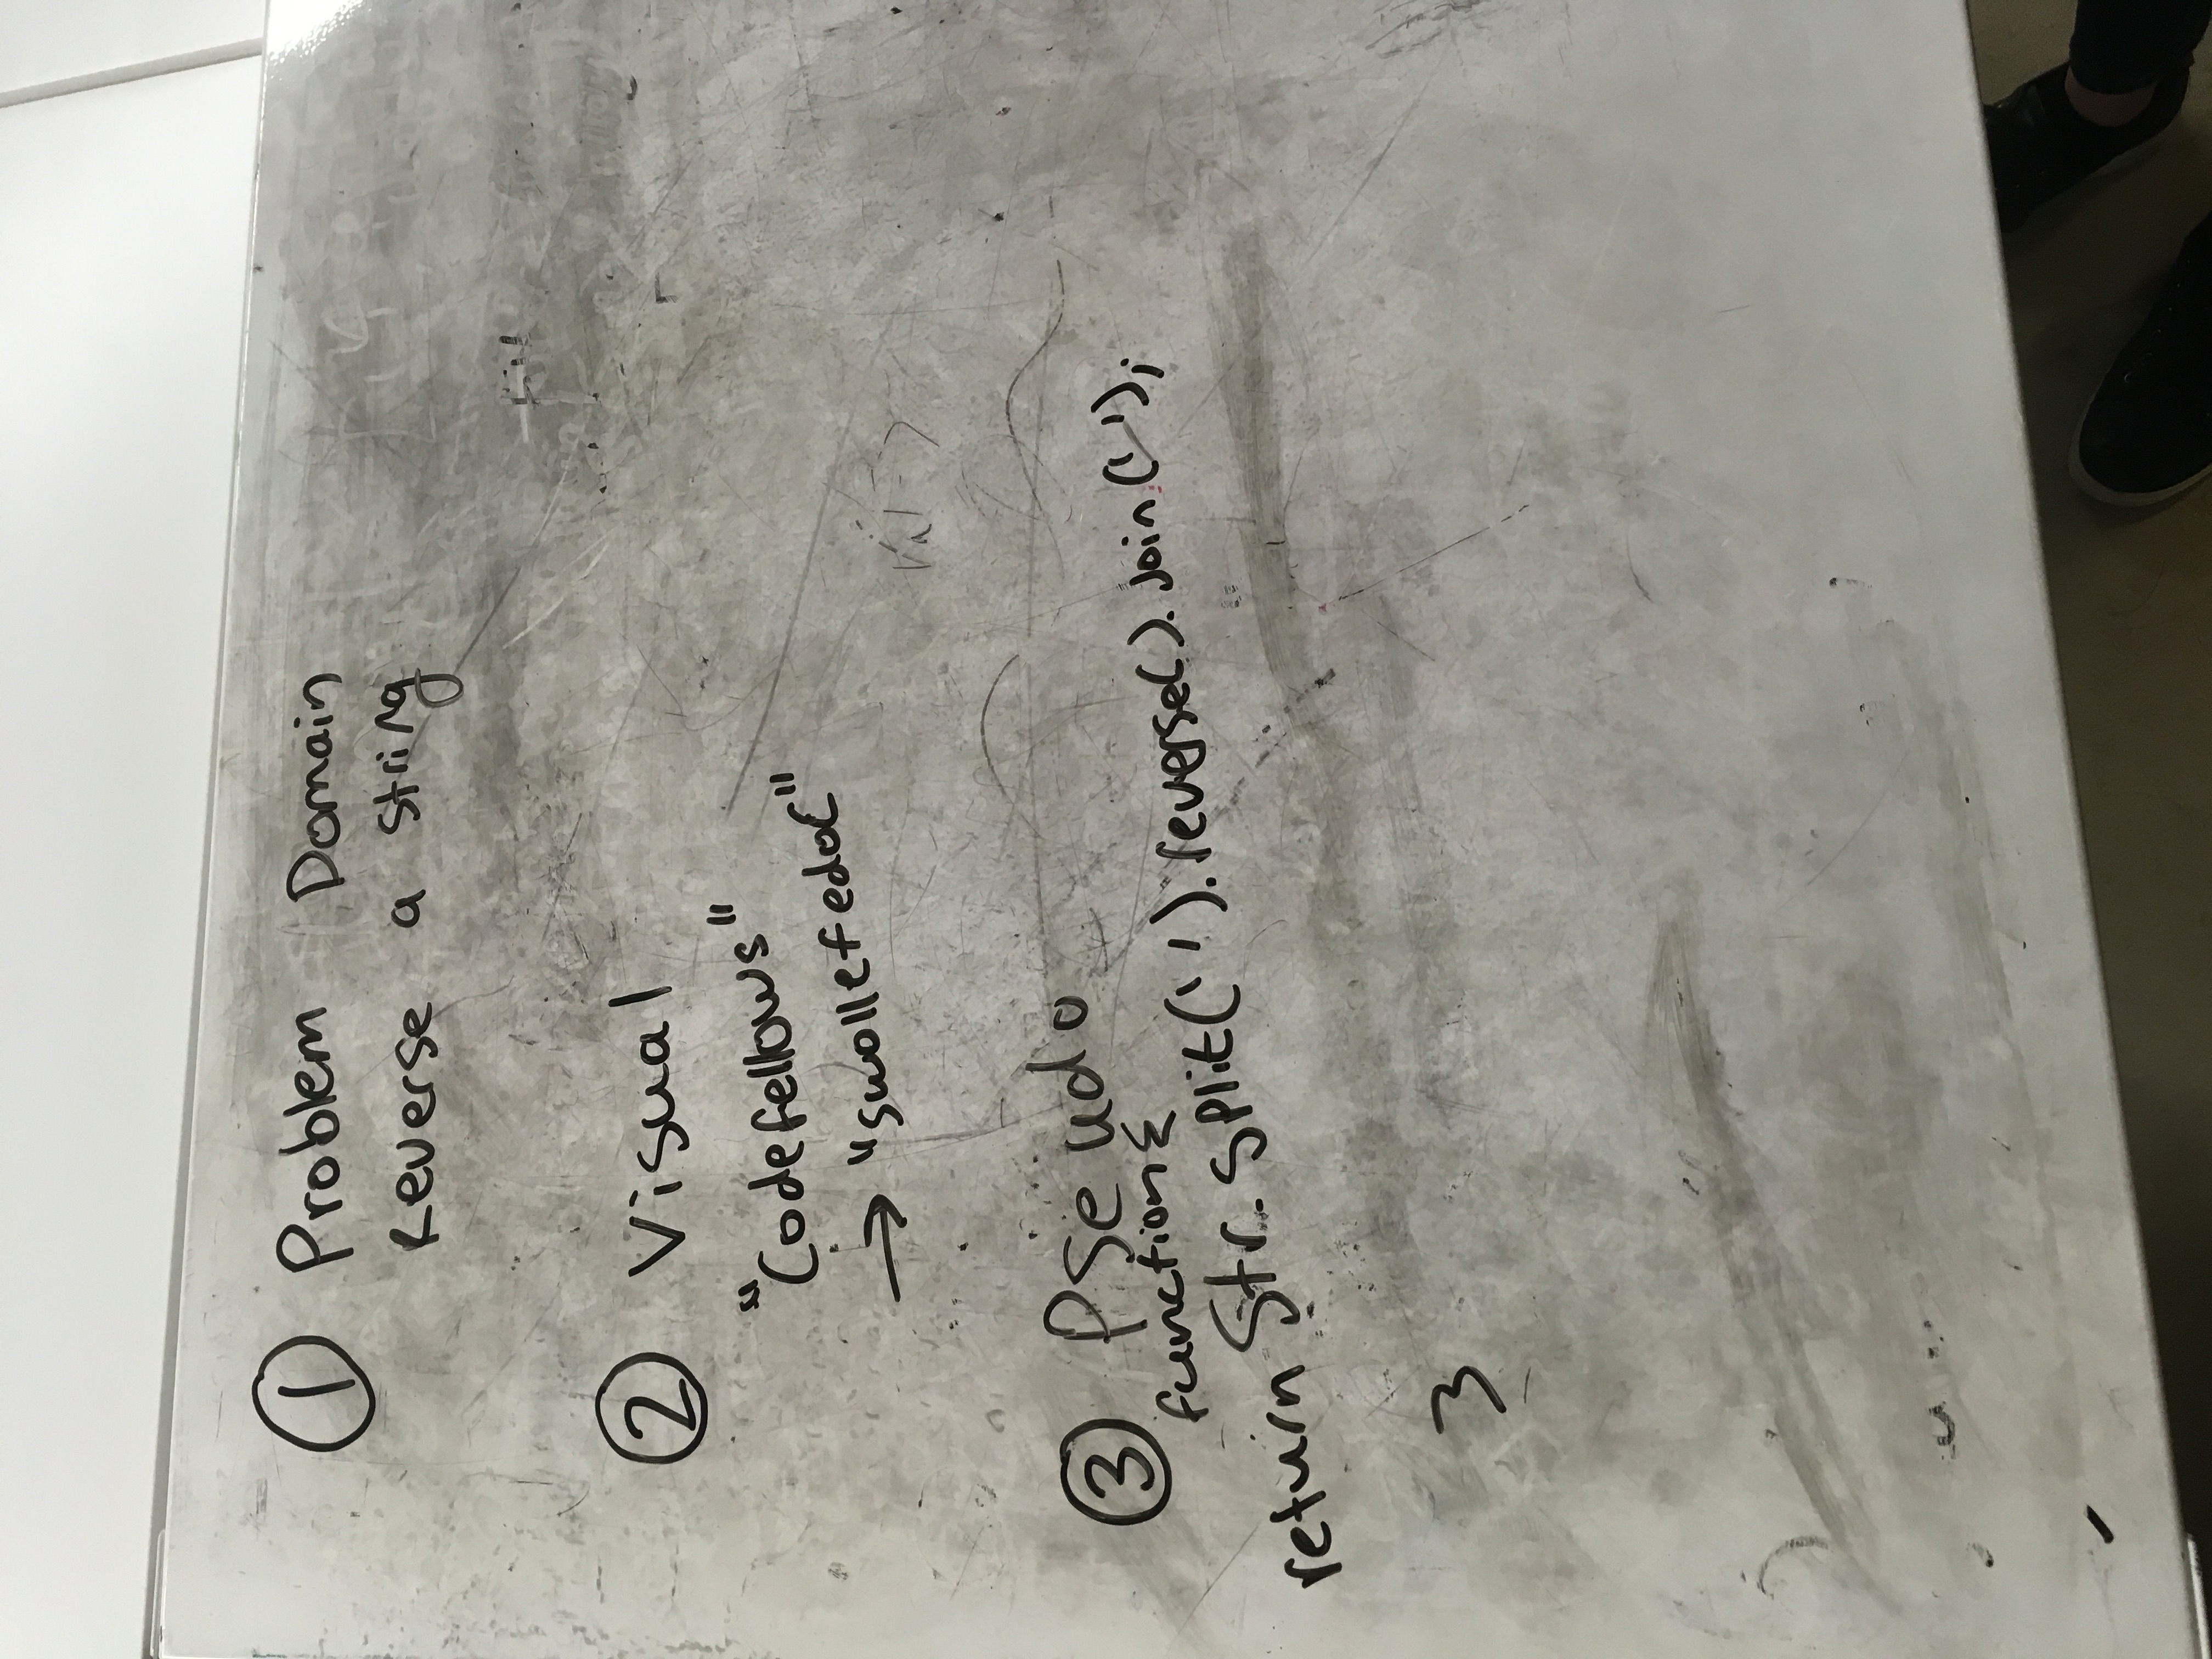 ① Problem Domain
Reverse a string
② Visual
"Codefellows"
→ "swollefedoC"
③ Pseudo
function {
return Str.split('').reverse().join('');
}